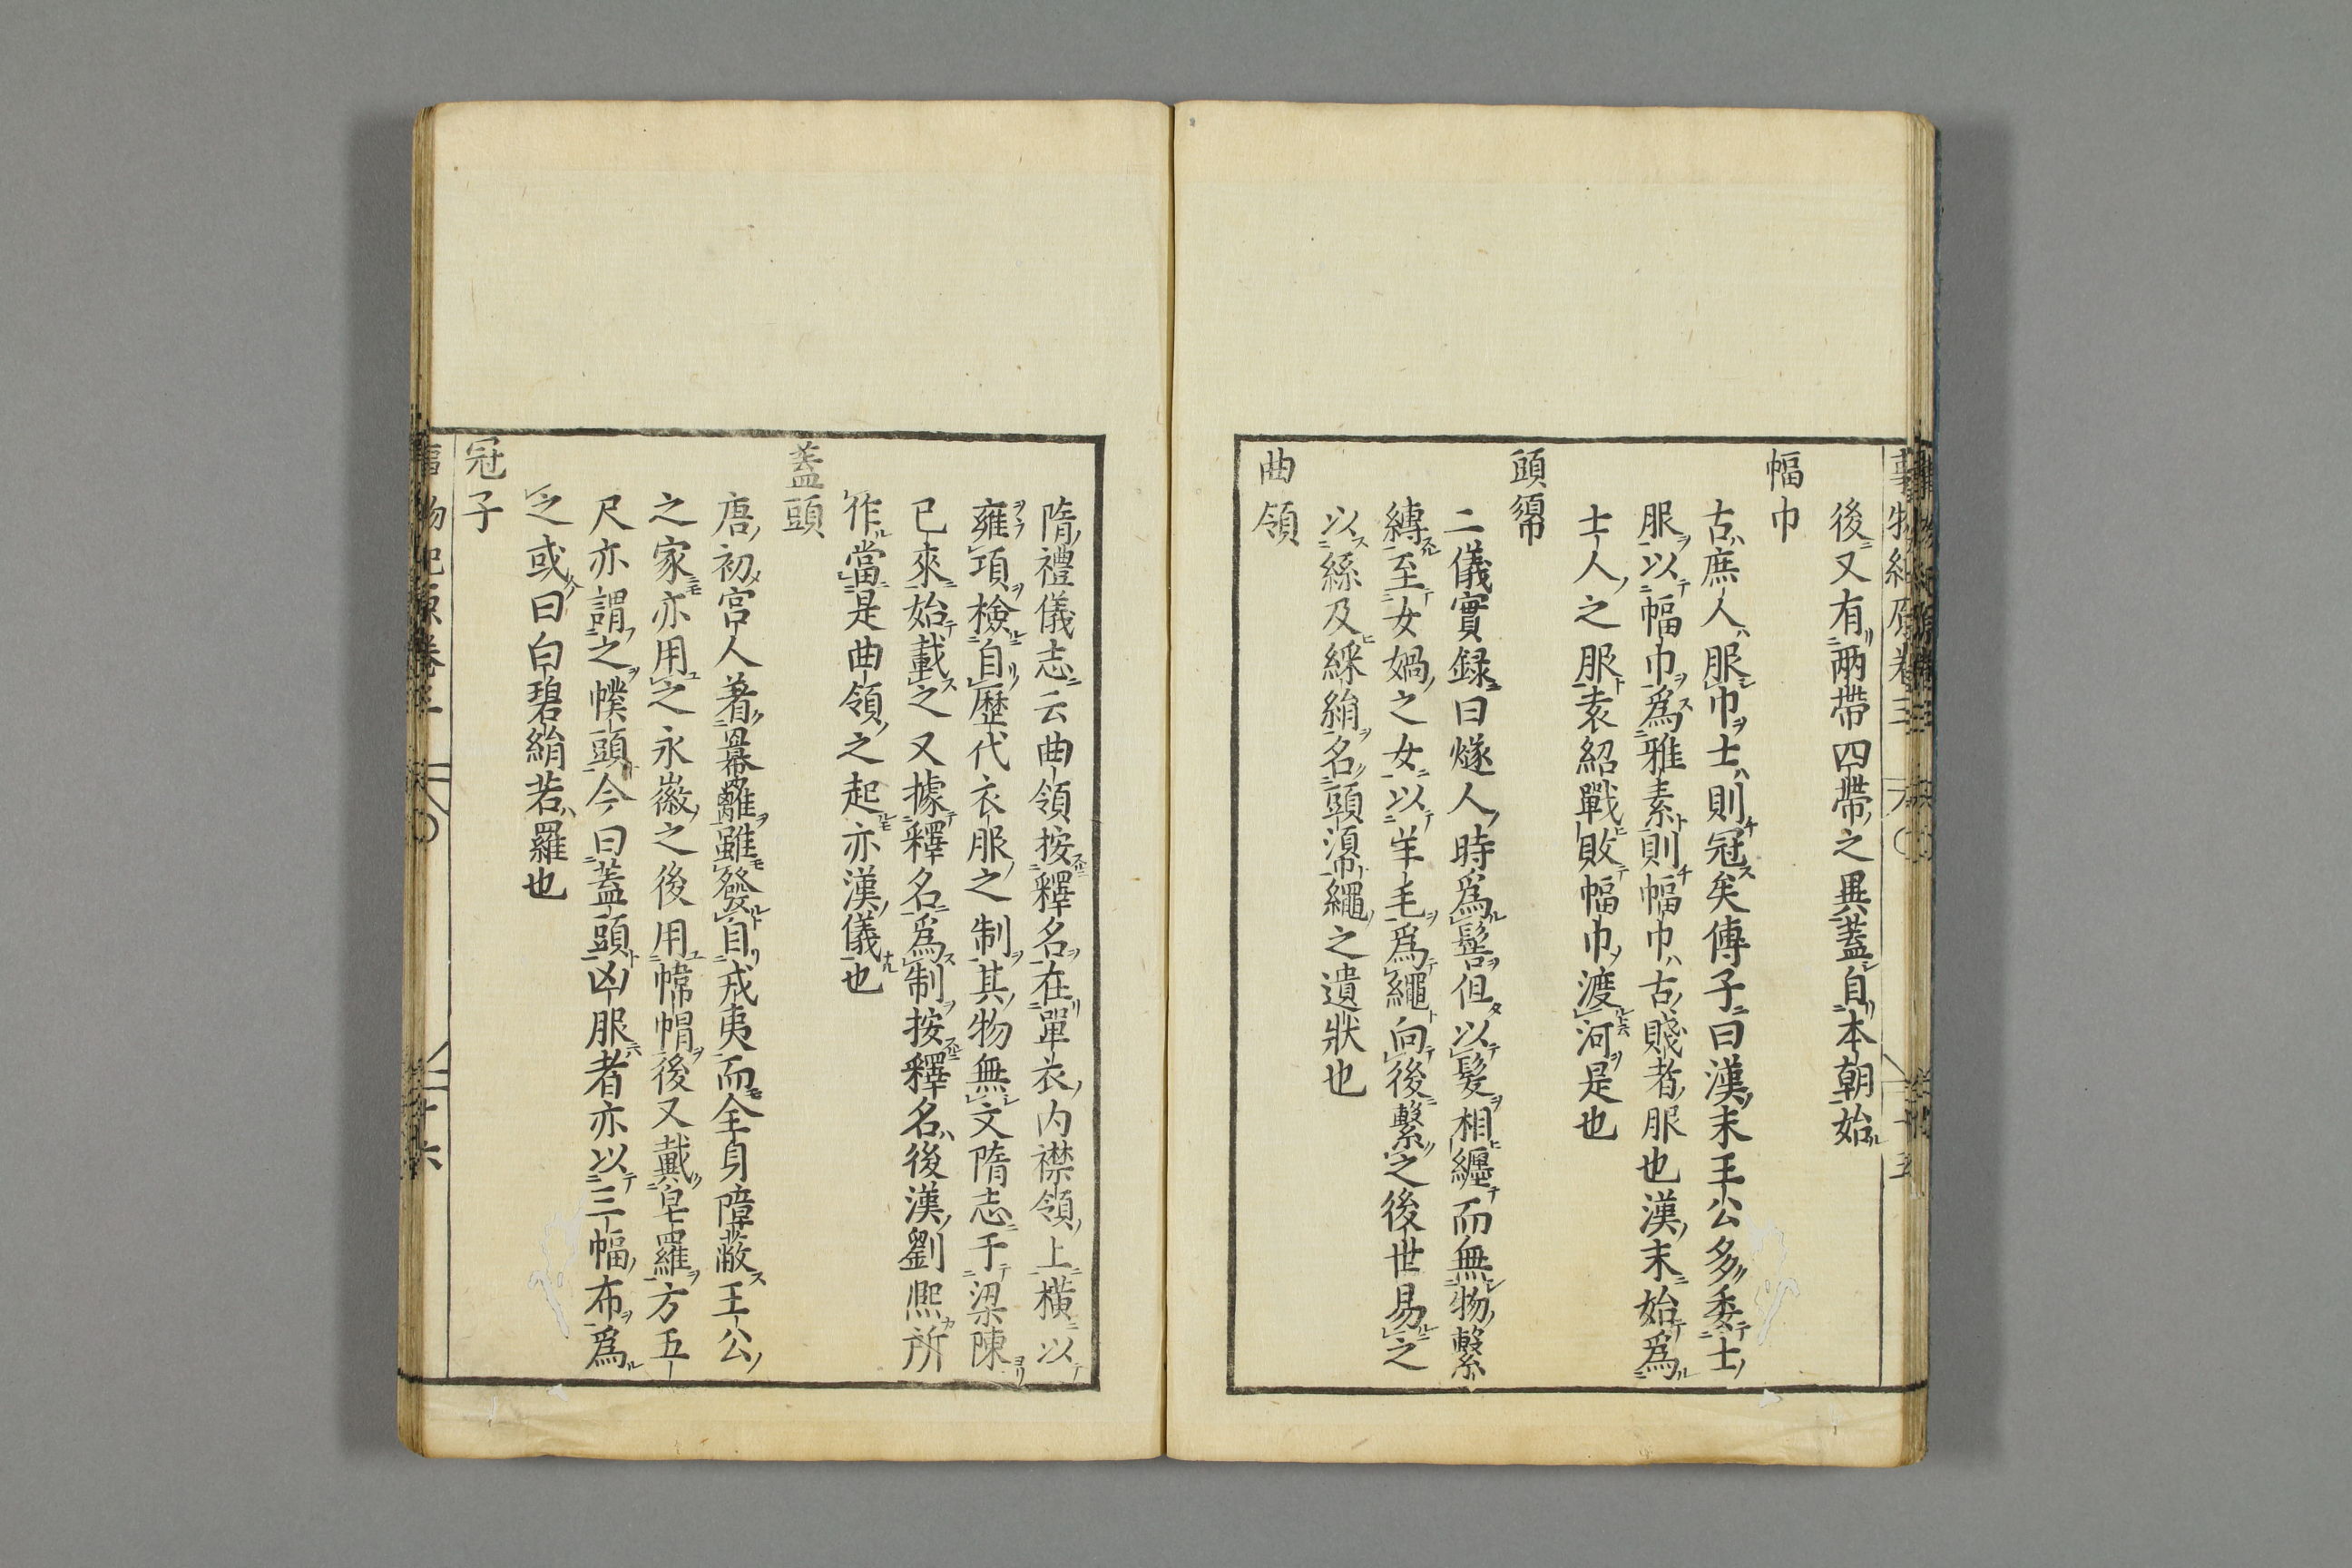 事物紀原卷三
後又有兩帶四帶之異蓋自本朝始
幅巾
古庶人服巾士則冠矣傅子曰漢末王公多委士
服以幅巾爲雅素則幅巾古賤者服也漢末始爲
士人之服袁紹戰敗幅巾渡河是也
頭䰅
二儀實録曰燧人時爲髻但以髮相纒而無物繫
縳至女媧之女以羊毛爲繩向後繫之後世易之
以絲及綵絹名頭䰅繩之遺狀也
曲領
隋禮儀志云曲領按釋名在單衣内襟領上橫以
雍項檢自歷代衣服之制其物無文隋志于梁陳
已來始載之又據釋名爲制按釋名後漢劉熈所
作當是曲領之起亦漢儀也
蓋頭
唐初宮人著冪䍦雖發自戎夷而全身障蔽王公
之家亦用之永徽之後用帷帽後又戴皂羅方五
尺亦謂之幞頭今曰蓋頭凶服者亦以三幅布爲
之或曰白碧絹若羅也
冠子